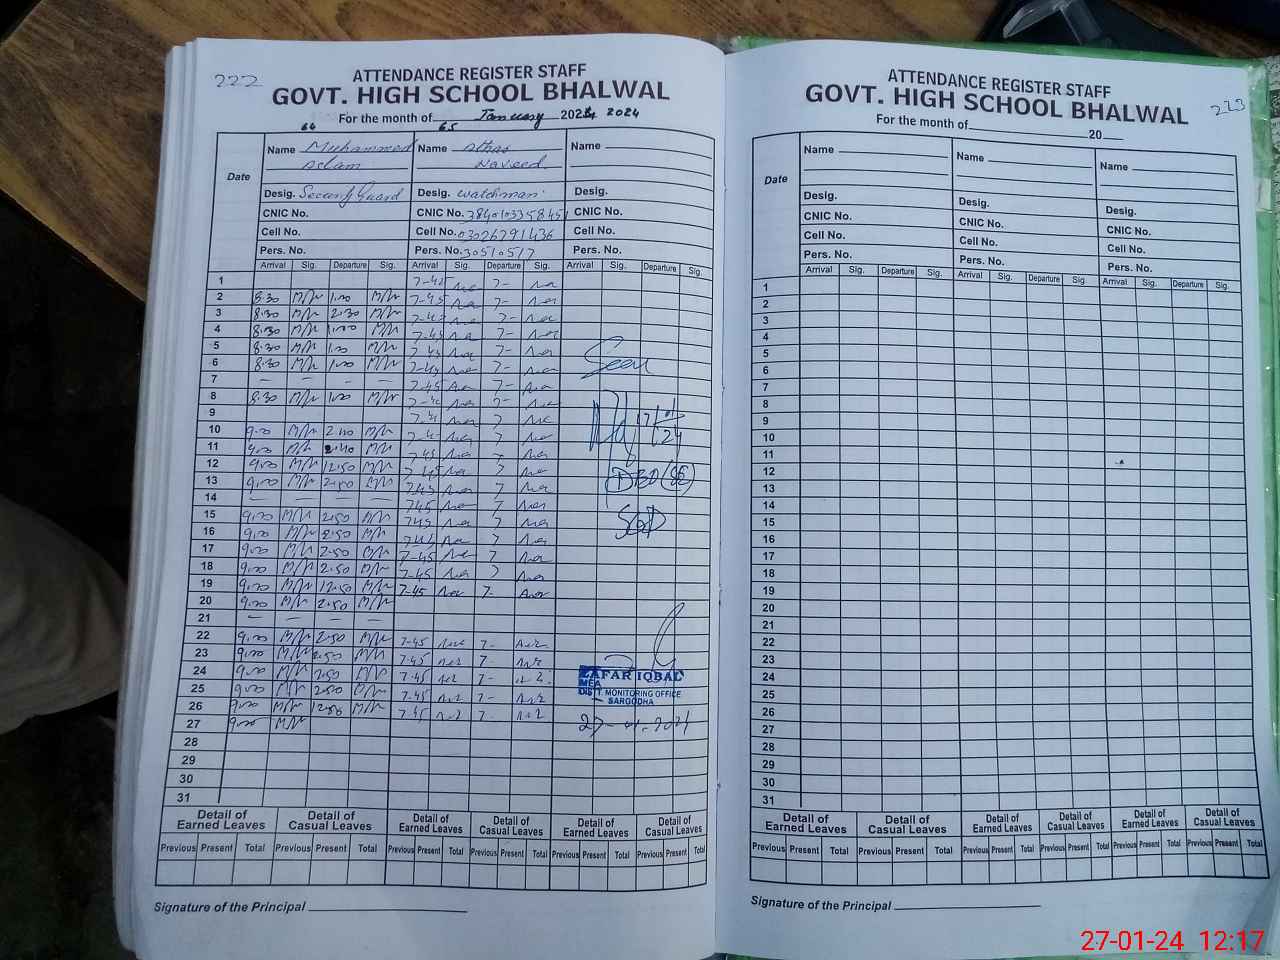 222
ATTENDANCE REGISTER STAFF
GOVT. HIGH SCHOOL BHALWAL
For the month of January 2024 2024
64 65
Name Muhammad Aslam Name Athar Naveed Name
Date
Desig. Security Guard Desig. watchman Desig.
CNIC No. CNIC No. CNIC No.
Cell No. Cell No. 03026791436 Cell No.
Pers. No. Pers. No. 30510517 Pers. No.
Arrival Sig. Departure Sig. Arrival Sig. Departure Sig. Arrival Sig. Departure Sig.
1 7-45 7-
2 8.30 1.00 7-45 7-
3 8.30 2.30 7-45 7-
4 8.30 1.00 7-45 7-
5 8.30 1.00 7-45 7-
6 8.30 1.00 7-45 7-
7 — — — — 7-45 7-
8 8.30 1.00 7-45 7-
9 7-45 7
10 9.00 2.40 7-45 7
11 9.00 2.40 7-45 7
12 9.00 12.50 7-45 7
13 9.00 2.50 745 7
14 — — — — 745 7
15 9.00 2.50 745 7
16 9.00 2.50 745 7
17 9.00 2.50 7-45 7
18 9.00 2.50 7-45 7
19 9.00 12.50 7-45 7-
20 9.00 2.50
21 — — — —
22 9.00 2.50 7-45 7-
23 9.00 2.50 7-45 7-
24 9.00 2.50 7-45 7-
25 9.00 2.50 7-45 7-
26 9.00 12.50 7-45 7-
27 9.00
28
29
30
31
Seen
17/01/24
DEO (SE)
SGD
ZAFAR IQBAL
MEA
DISTT. MONITORING OFFICE
SARGODHA
27-01-2024
Detail of Earned Leaves Detail of Casual Leaves Detail of Earned Leaves Detail of Casual Leaves Detail of Earned Leaves Detail of Casual Leaves
Previous Present Total Previous Present Total Previous Present Total Previous Present Total Previous Present Total Previous Present Total
Signature of the Principal
ATTENDANCE REGISTER STAFF
GOVT. HIGH SCHOOL BHALWAL
223
For the month of 20
Name Name Name
Date
Desig. Desig. Desig.
CNIC No. CNIC No. CNIC No.
Cell No. Cell No. Cell No.
Pers. No. Pers. No. Pers. No.
Arrival Sig. Departure Sig. Arrival Sig. Departure Sig. Arrival Sig. Departure Sig.
1
2
3
4
5
6
7
8
9
10
11
12
13
14
15
16
17
18
19
20
21
22
23
24
25
26
27
28
29
30
31
Detail of Earned Leaves Detail of Casual Leaves Detail of Earned Leaves Detail of Casual Leaves Detail of Earned Leaves Detail of Casual Leaves
Previous Present Total Previous Present Total Previous Present Total Previous Present Total Previous Present Total Previous Present Total
Signature of the Principal
27-01-24 12:17